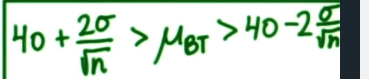 40 + 2σ/√n > μBT > 40 - 2 σ/√n